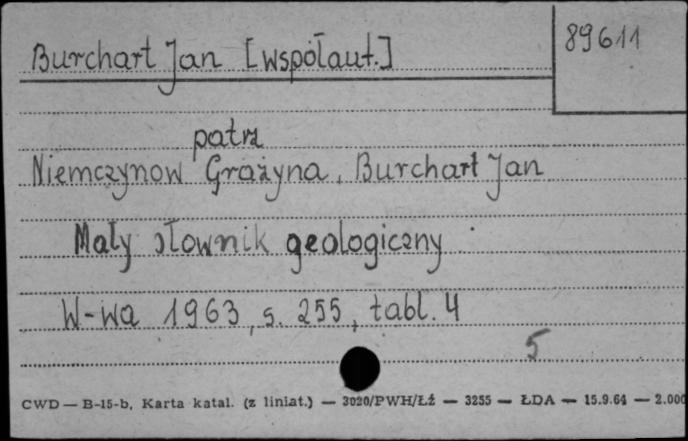 Burchart Jan [współaut.]
89611
patrz
Niemczynow Grażyna, Burchart Jan
Mały słownik geologiczny
W-wa 1963, s. 255, tabl. 4
5
CWD — B-15-b, Karta katal. (z liniat.) — 3020/PWH/Łź — 3255 — ŁDA — 15.9.64 — 2.000